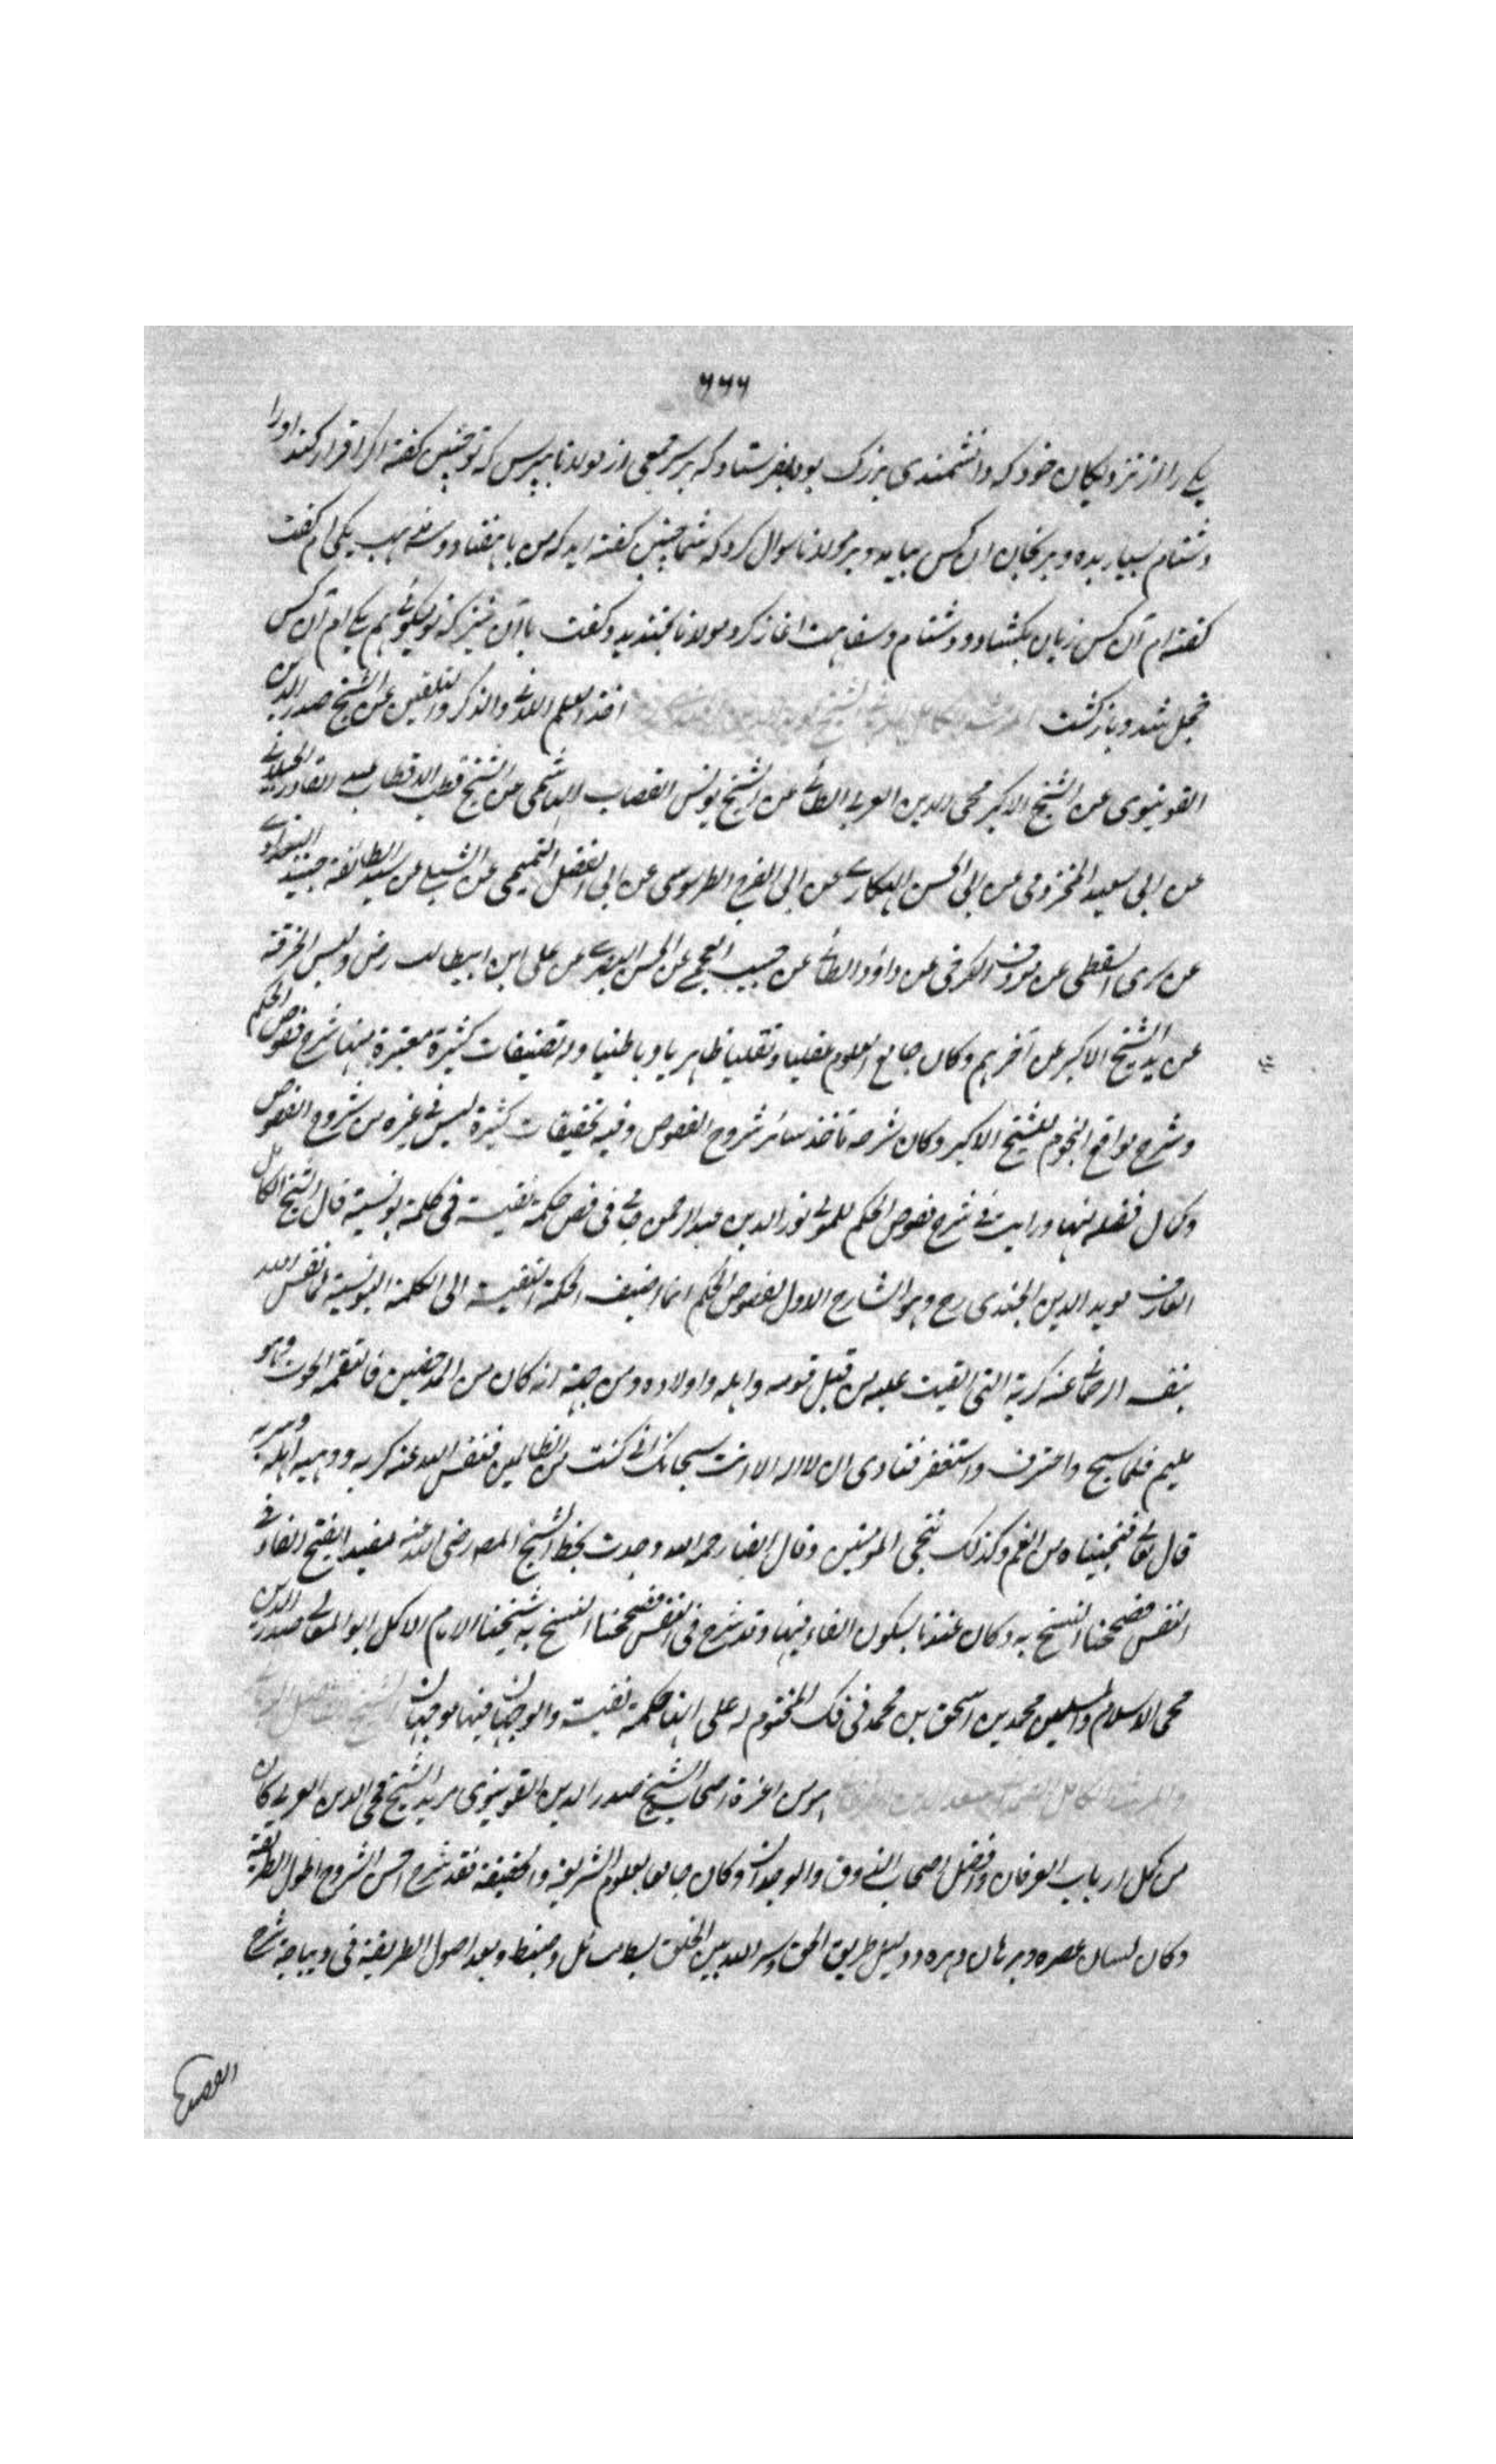 ۶۶۶
یکے را از نزدیکان خود که دانشمندی بزرگ بود بفرستاد که بر سر جمعی از مولانا بپرس که تو چنین کفته اکر اقرار کند اورا
دشنام بسیار بده و برنجان ان کس بیامد و بر مولانا سوال کرد که شما چنین کفته اید که من با هفتاد و سه مذهب یکی ام کفت
کفته ام آن کس زبان بکشاد و دشنام و سفاهت اغاز کرد مولانا بخندید و کفت با این نیز که تو میکوئی هم یکے ام آن کس
خجل شد و باز کشت اخذ العلم اللدنی والذکر والتلقین عن الشیخ صدر الدین
القونیوی عن الشیخ الاکبر محی الدین العربی الطائی عن الشیخ یونس القصاب الهاشمی عن الشیخ قطب الاقطاب عبد القادر الجیلانی
عن ابی سعید المخزومی عن ابی الحسن الهکاری عن ابی الفرج الطرسوسی عن ابی الفضل التمیمی عن الشبلی عن سید الطائفة جنید البغدادی
عن سری السقطی عن معروف الکرخی عن داؤد الطائی عن حبیب العجمی عن الحسن البصری عن علی ابن ابیطالب رض ولبس الخرقة
عن ید الشیخ الاکبر عن آخرهم وکان جامع العلوم عقلیا ونقلیا ظاهریا وباطنیا وله تصنیفات کثیرة معتبرة منها شرح فصوص الحکم
وشرح مواقع النجوم للشیخ الاکبر وکان شرحه مآخذ سائر شروح الفصوص وفیه تحقیقات کثیرة لیس فی غیره من شروح الفصوص
وکمال فضله منها ورایت فی شرح فصوص الحکم للمولی نور الدین عبد الرحمن جامی فی فص حکمة نفسیة فی کلمة یونسیة قال الشیخ الکامل
العارف موید الدین الجندی رح وهو الشارح الاول لفصوص الحکم انما اضیف الحکمة النفسیة الی الکلمة الیونسیة لما نفس الله
بنفسه الرحمانی عنه کربه التی القیت علیه من قبل قومه واهله واولاده ومن جهة انه کان من المدحضین فالتقمه الحوت وهو
ملیم فلما سبح واعترف واستغفر فنادی ان لا اله الا انت سبحانک انی کنت من الظالمین فنفس الله عنه کربه ووهبه اهله وسربه
قال تعالی فنجیناه من الغم وکذلک ننجی المومنین وقال ایضا رحمه الله وجدت بخط الشیخ المصـ رضی الله عنه مقیدا بفتح الفاء فی
النفس فصححنا النسخ به وکان عندنا بسکون الفاء فیها وقد شرح فی النفس فصححنا النسخ به شیخنا الامام الاکمل ابو المعالی صدر الدین
محی الاسلام والمسلمین محمد بن اسحق بن محمد فی فک المختوم له علی انها حکمة نفسیة والوجهان فیها موجهان
هو من اعزة اصحاب الشیخ صدر الدین القونیوی مرید الشیخ محی الدین العربی کان
من کمل ارباب العرفان وافضل اصحاب الذوق والوجدان وکان جامعا لعلوم الشریعة والحقیقة فقد شرح احسن الشروح اصول الطریقة
وکان لسان عصره وبرهان دهره ودلیل طریق الحق وسر الله بین الخلق وضبط وبعد اصول الطریقة فی دیباجة شرح
القصیدة